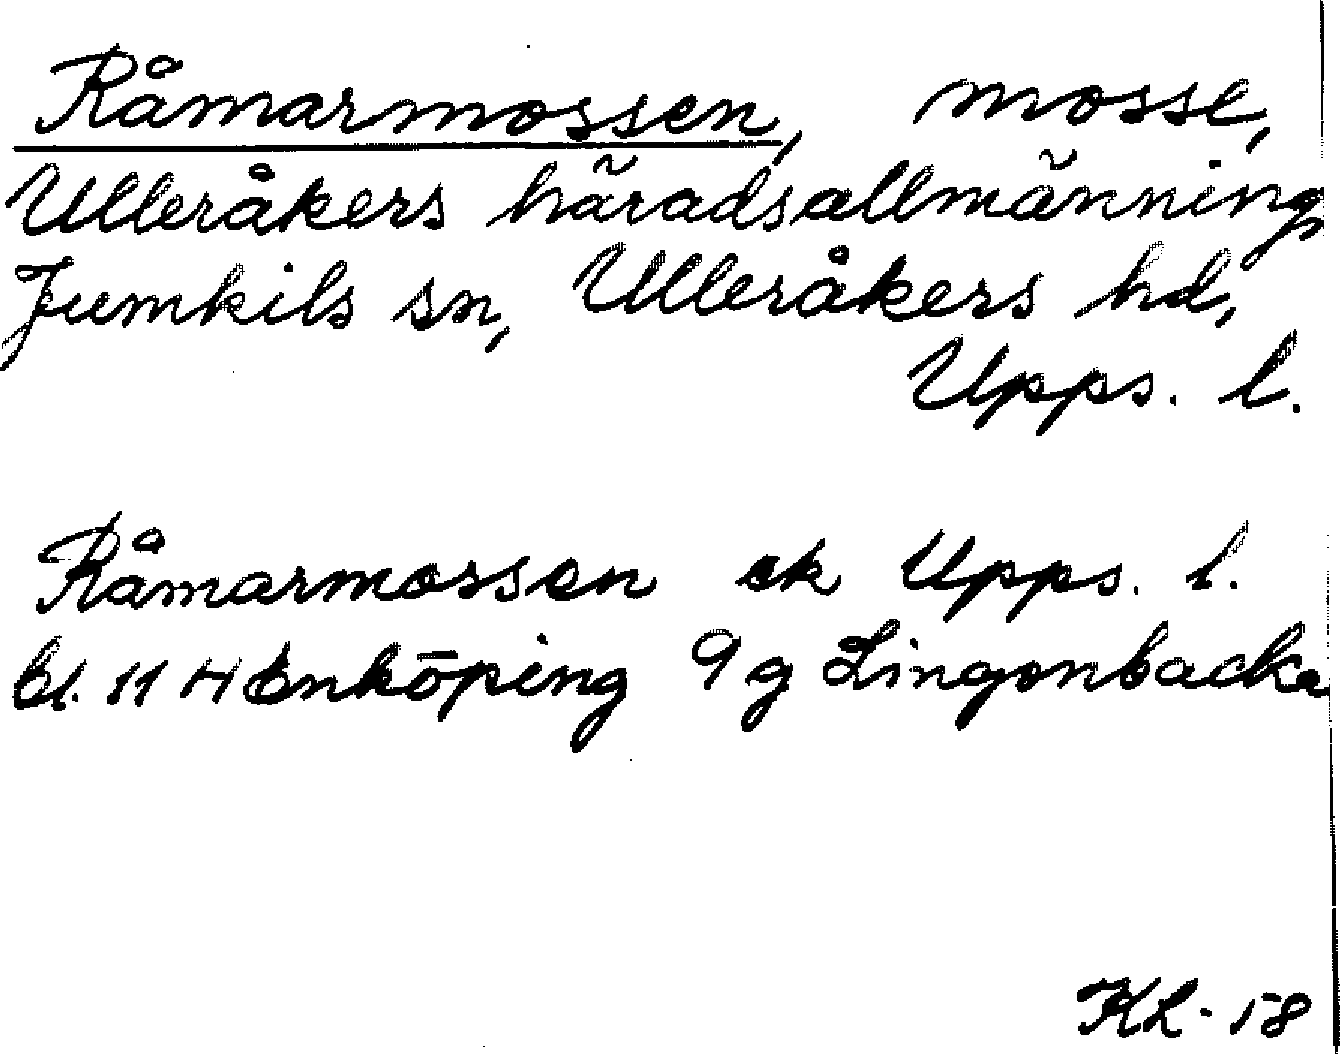 Råmarmossen, mosse,
Ulleråkers häradsallmänning,
Jumkils sn, Ulleråkers hd,
Upps. l.
Råmarmossen ek Upps. l.
bl. 11 H Enköping 9 g Lingonbacka
KL - 58